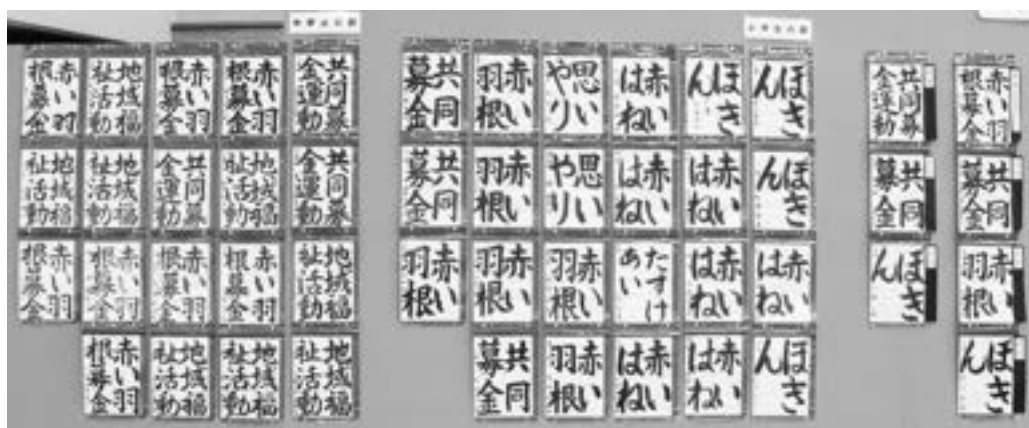 中学生の部
赤い羽
根募金
地域福
祉活動
赤い羽
根募金
赤い羽
根募金
共同募
金運動
地域福
祉活動
地域福
祉活動
共同募
金運動
地域福
祉活動
共同募
金運動
赤い羽
根募金
赤い羽
根募金
赤い羽
根募金
赤い羽
根募金
地域福
祉活動
赤い羽
根募金
地域福
祉活動
地域福
祉活動
地域福
祉活動
小学生の部
共同
募金
赤い
羽根
思い
やり
赤い
はね
ほき
ん
ほき
ん
共同
募金
赤い
羽根
思い
やり
赤い
はね
赤い
はね
ほき
ん
赤い
羽根
赤い
羽根
赤い
羽根
たすけ
あい
赤い
はね
赤い
はね
共同
募金
赤い
羽根
赤い
はね
赤い
はね
ほき
ん
共同募
金運動
赤い羽
根募金
共同
募金
共同
募金
ほき
ん
赤い
羽根
ほき
ん